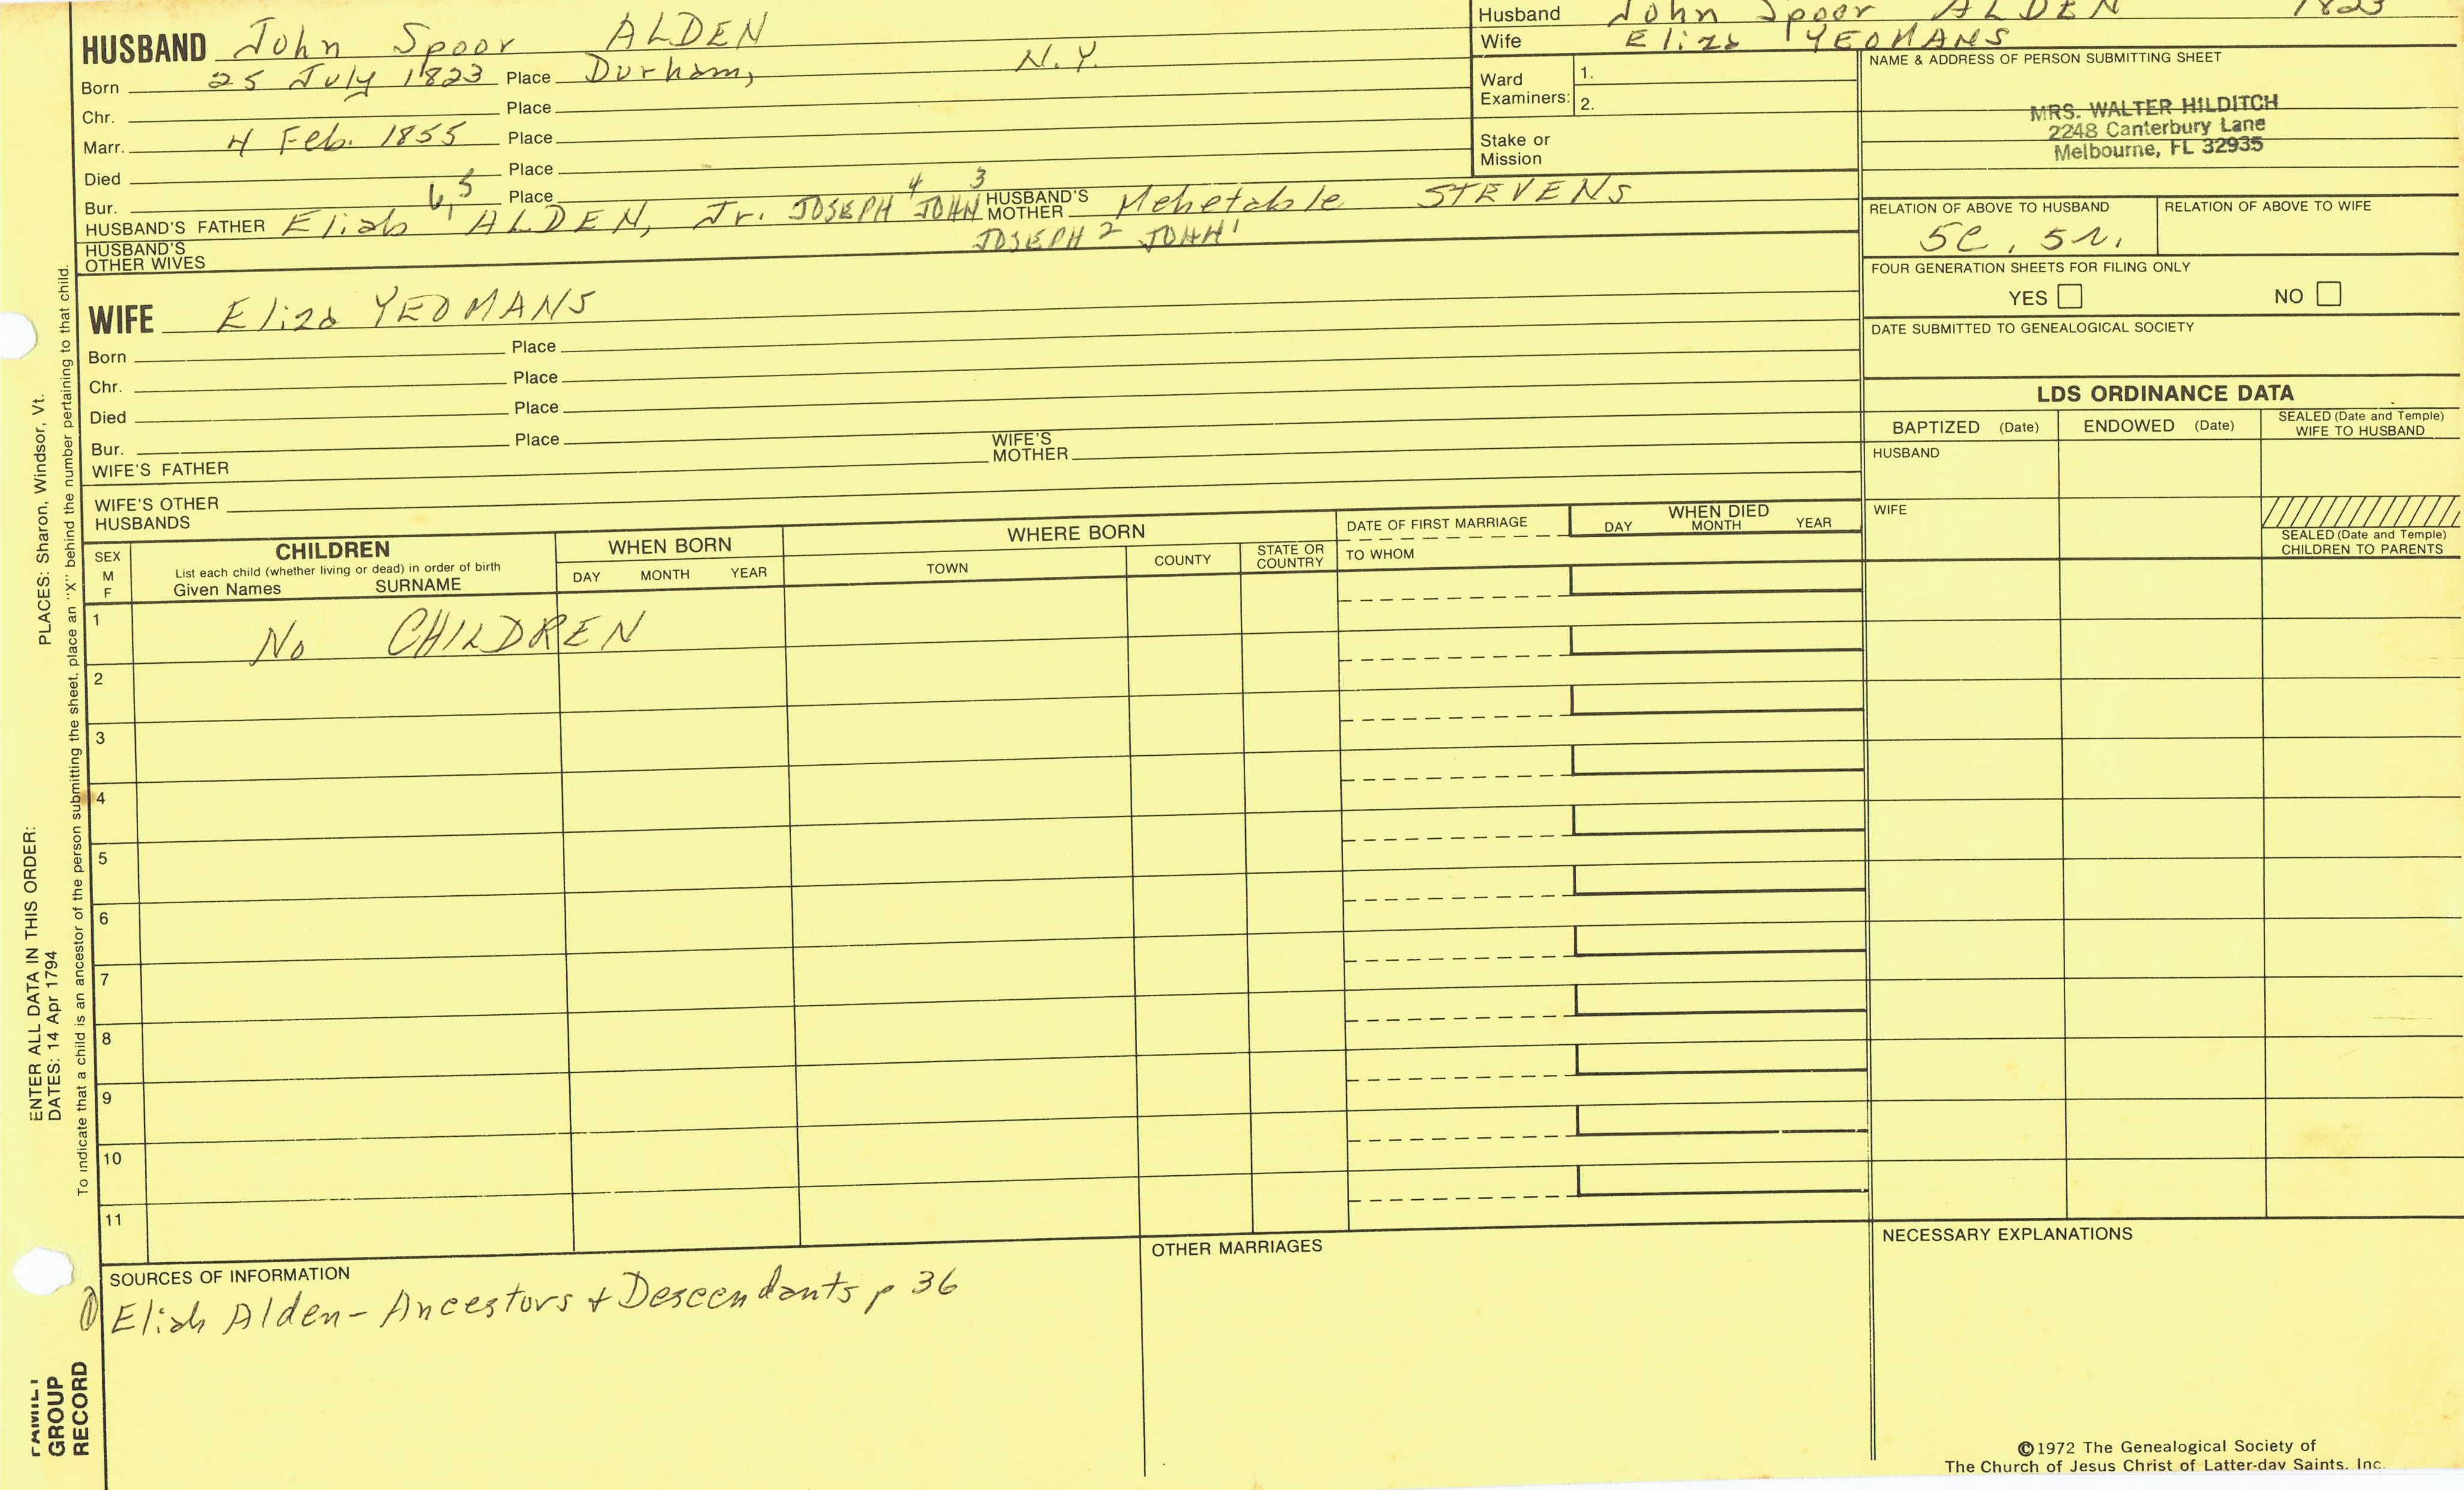 HUSBAND John Spoor ALDEN
Born 25 July 1823 Place Durham, N.Y.
Chr. Place
Marr. 4 Feb. 1855 Place
Died Place
Bur. Place
HUSBAND'S FATHER Eliab 6,5 ALDEN, Jr. JOSEPH 4 JOHN 3 HUSBAND'S MOTHER Mehetable STEVENS
JOSEPH 2 JOHN 1
HUSBAND'S OTHER WIVES
Husband John Spoor ALDEN 1823
Wife Eliza YEOMANS
Ward Examiners: 1.
2.
Stake or Mission
NAME & ADDRESS OF PERSON SUBMITTING SHEET
MRS. WALTER HILDITCH
2248 Canterbury Lane
Melbourne, FL 32935
RELATION OF ABOVE TO HUSBAND RELATION OF ABOVE TO WIFE
5C, 5r.
FOUR GENERATION SHEETS FOR FILING ONLY
YES NO
DATE SUBMITTED TO GENEALOGICAL SOCIETY
WIFE Eliza YEOMANS
Born Place
Chr. Place
Died Place
Bur. Place
WIFE'S FATHER WIFE'S MOTHER
WIFE'S OTHER HUSBANDS
LDS ORDINANCE DATA
BAPTIZED (Date) ENDOWED (Date) SEALED (Date and Temple) WIFE TO HUSBAND
HUSBAND
WIFE
SEALED (Date and Temple) CHILDREN TO PARENTS
SEX M F
CHILDREN
List each child (whether living or dead) in order of birth
Given Names SURNAME
WHEN BORN
DAY MONTH YEAR
WHERE BORN
TOWN COUNTY STATE OR COUNTRY
DATE OF FIRST MARRIAGE
TO WHOM
WHEN DIED
DAY MONTH YEAR
1 No CHILDREN
2
3
4
5
6
7
8
9
10
11
SOURCES OF INFORMATION
① Eliab Alden - Ancestors + Descendants p 36
OTHER MARRIAGES
NECESSARY EXPLANATIONS
©1972 The Genealogical Society of
The Church of Jesus Christ of Latter-day Saints, Inc.
ENTER ALL DATA IN THIS ORDER:
DATES: 14 Apr 1794 PLACES: Sharon, Windsor, Vt.
To indicate that a child is an ancestor of the person submitting the sheet, place an "X" behind the number pertaining to that child.
FAMILY
GROUP
RECORD